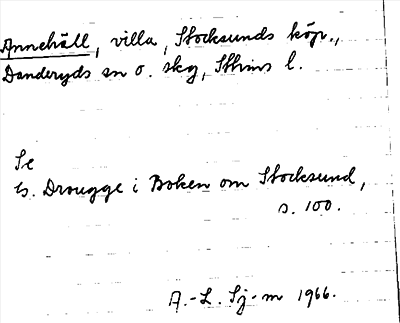 Annehäll, villa, Stocksunds köp.,
Danderyds sn o. skg, Sthlms l.
Se
G. Drougge i Boken om Stocksund,
s. 100.
A.-L. Sj-m 1966.